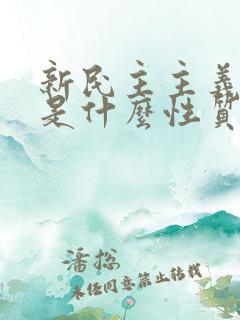 新民主主義
是什麼性質
潘總
未經同意禁止轉載